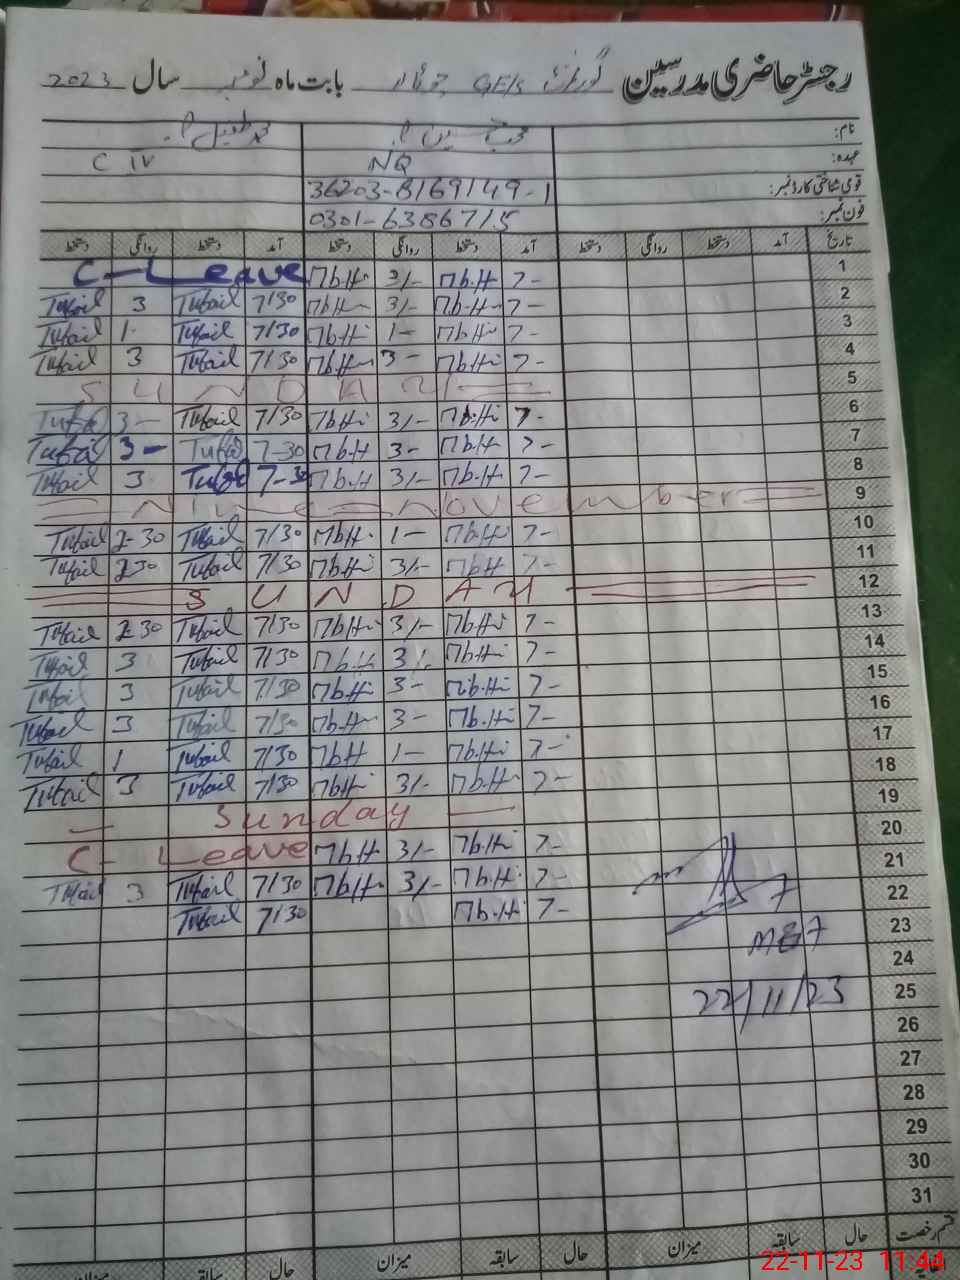 رجسٹر حاضری مدرسین گورنمنٹ GE/s بابت ماہ نومبر سال 2023
نام:
عہدہ: NQ C IV
قومی شناختی کارڈ نمبر: 36203-8169149-1
فون نمبر: 0301-6386715
تاریخ آمد دستخط روانگی دستخط آمد دستخط روانگی دستخط آمد دستخط روانگی دستخط
C-Leave Mb.H 3/- Mb.H 7- 1
Tufail 3 Tufail 7/30 Mb.H 3/- Mb.H 7- 2
Tufail 1 Tufail 7/30 Mb.H 1- Mb.H 7- 3
Tufail 3 Tufail 7/30 Mb.H 3- Mb.H 7- 4
SUNDAY 5
Tufail 3- Tufail 7/30 Mb.H 3/- Mb.H 7- 6
Tufail 3- Tufail 7-30 Mb.H 3- Mb.H 7- 7
Tufail 3 Tufail 7-30 Mb.H 3/- Mb.H 7- 8
Nine November 9
Tufail 2-30 Tufail 7/30 Mb.H 1- Mb.H 7- 10
Tufail 2-30 Tufail 7/30 Mb.H 3/- Mb.H 7- 11
SUNDAY 12
Tufail 2-30 Tufail 7/30 Mb.H 3/- Mb.H 7- 13
Tufail 3 Tufail 7/30 Mb.H 3/- Mb.H 7- 14
Tufail 3 Tufail 7/30 Mb.H 3- Mb.H 7- 15
Tufail 3 Tufail 7/30 Mb.H 3- Mb.H 7- 16
Tufail 1 Tufail 7/30 Mb.H 1- Mb.H 7- 17
Tufail 3 Tufail 7/30 Mb.H 3/- Mb.H 7- 18
Sunday 19
C-Leave Mb.H 3/- Mb.H 7- 20
Tufail 3 Tufail 7/30 Mb.H 3/- Mb.H 7- 21
Tufail 7/30 Mb.H 7- 22
23
24
22/11/23 25
26
27
28
29
30
31
قسم رخصت حال سابقہ میزان حال سابقہ میزان حال سابقہ میزان
22-11-23 11:44